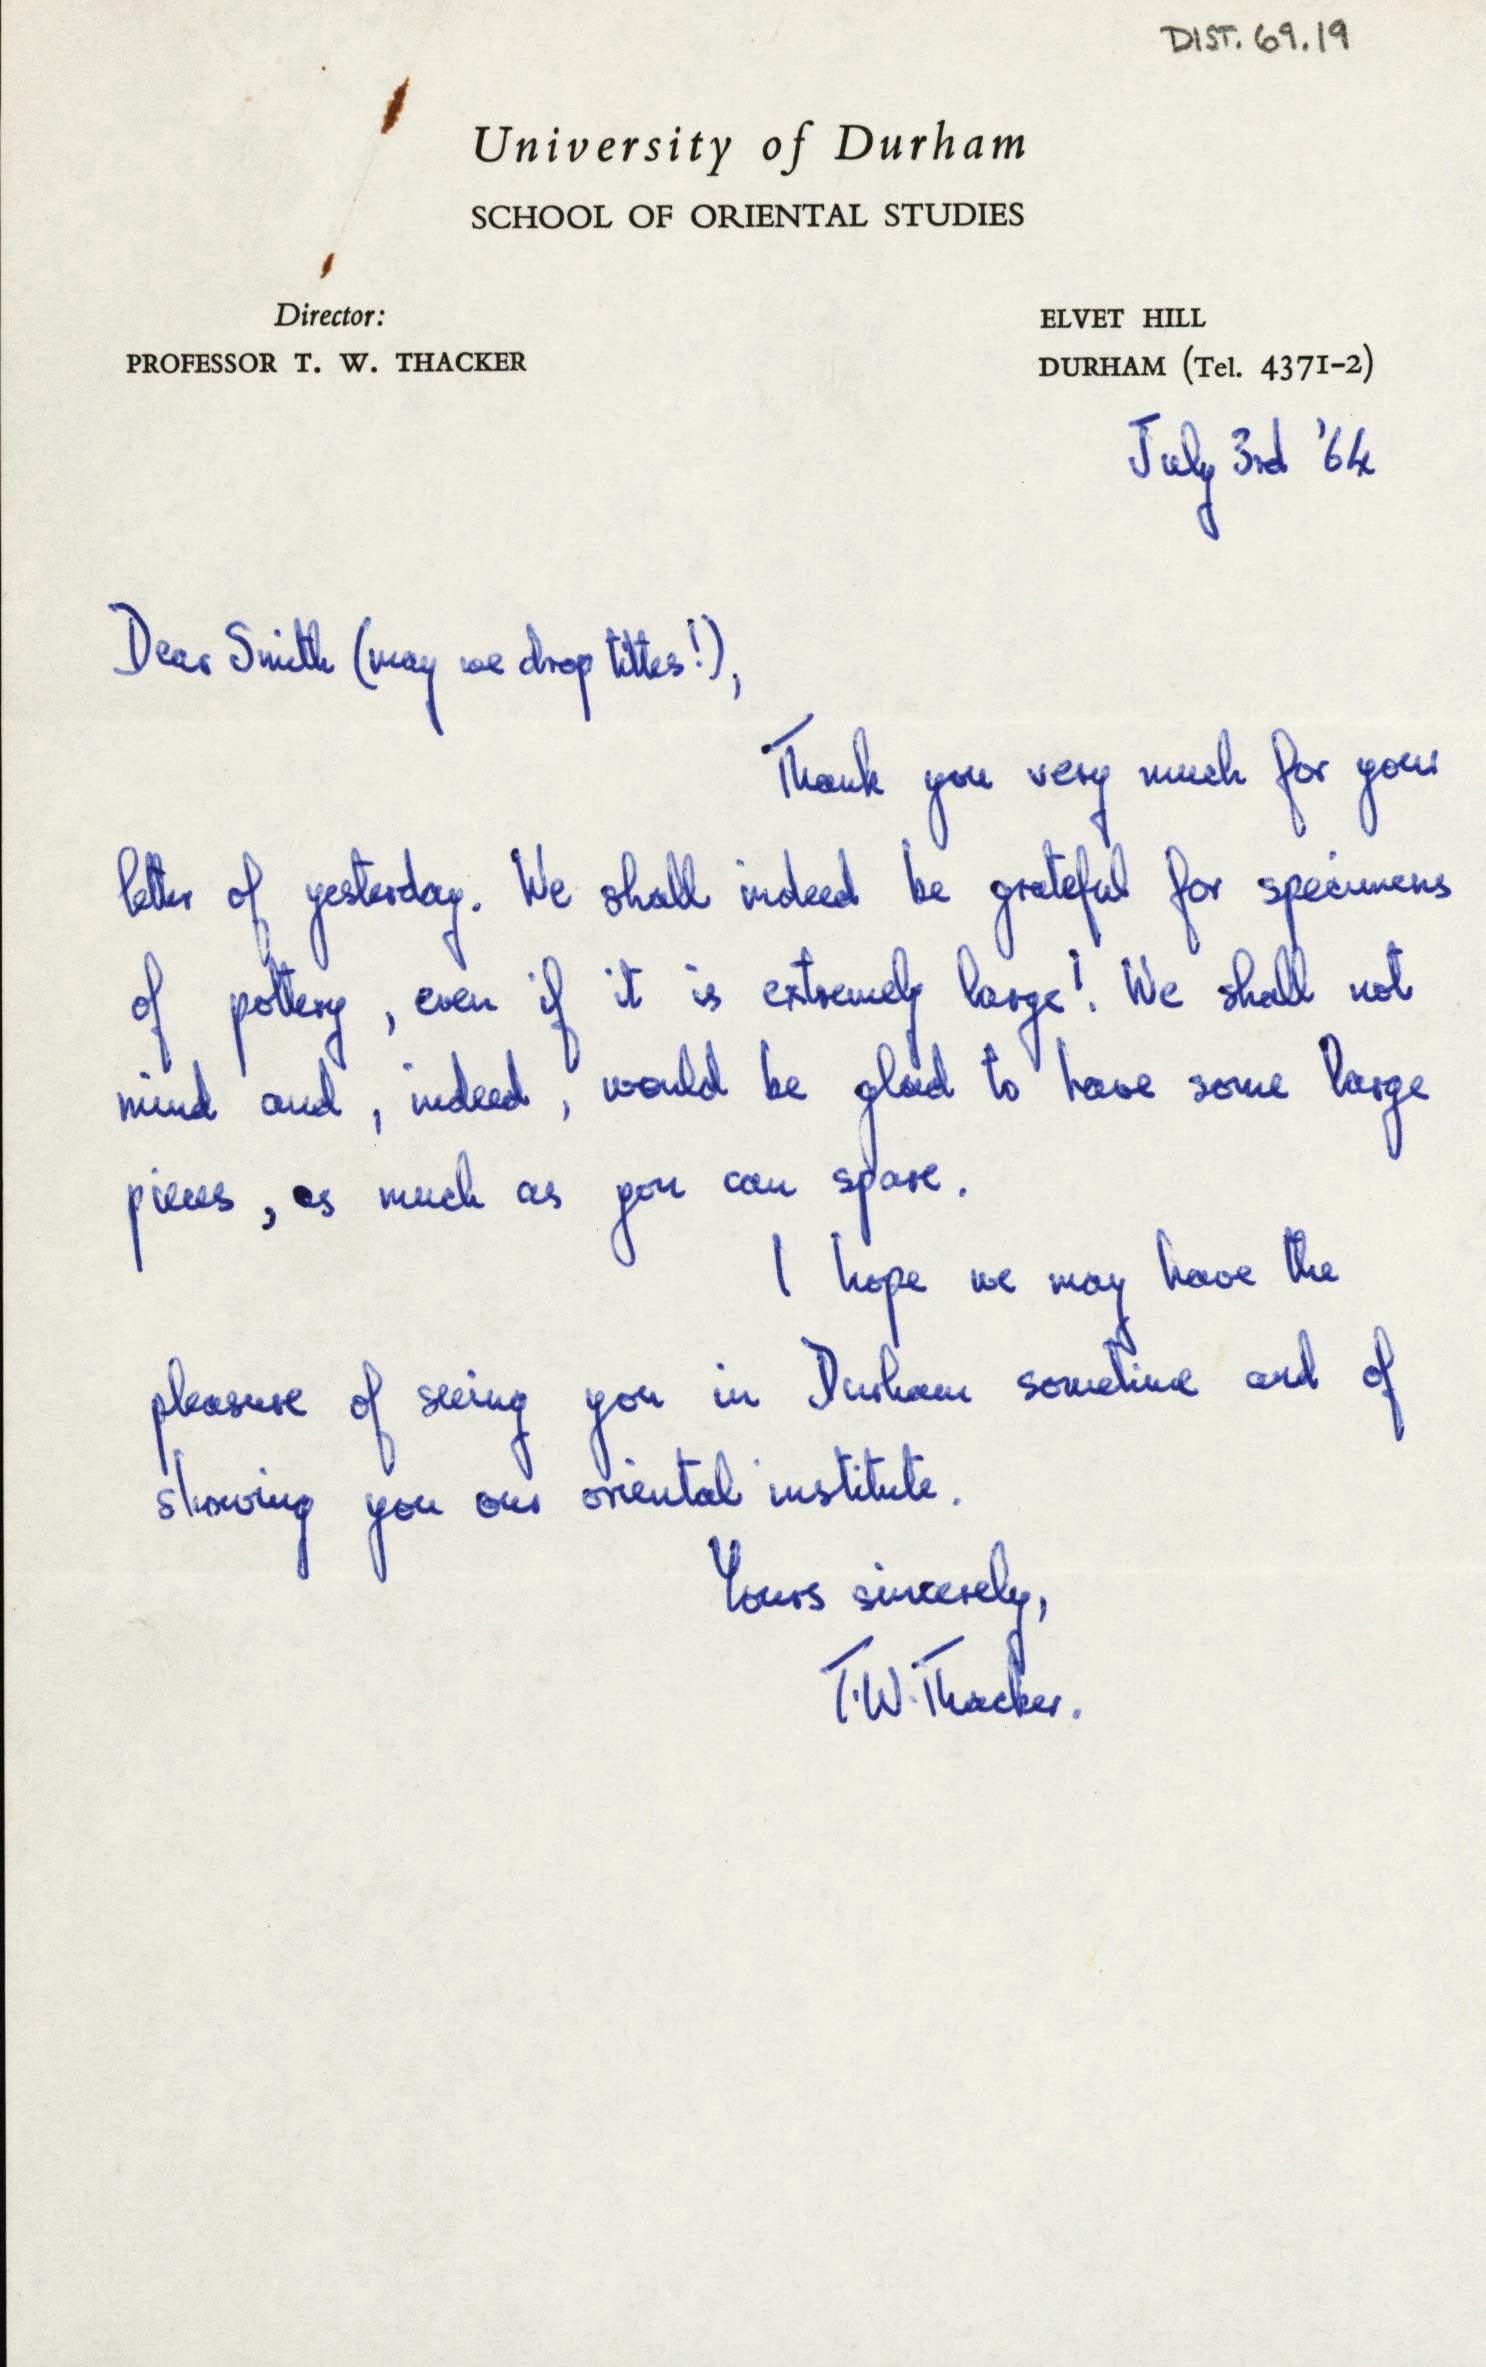 DIST. 69.19
University of Durham
SCHOOL OF ORIENTAL STUDIES
Director:
PROFESSOR T. W. THACKER
ELVET HILL
DURHAM (Tel. 4371-2)
July 3rd '64
Dear Smith (may we drop titles!),
Thank you very much for your
letter of yesterday. We shall indeed be grateful for specimens
of pottery, even if it is extremely large! We shall not
mind and, indeed, would be glad to have some large
pieces, as much as you can spare.
I hope we may have the
pleasure of seeing you in Durham sometime and of
showing you our oriental institute.
Yours sincerely,
T.W. Thacker.